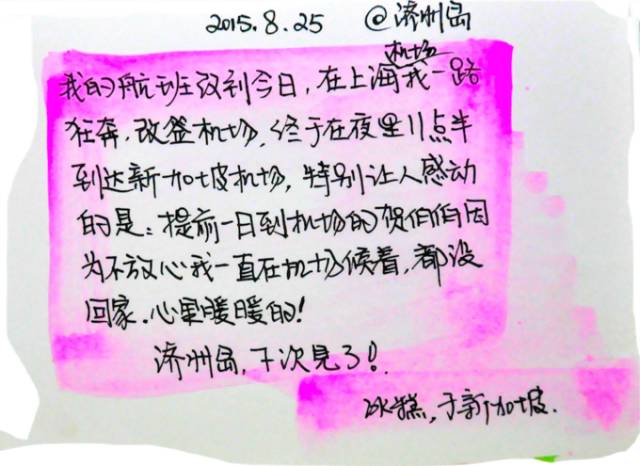 2015.8.25 @济洲岛
我的航班改到今日，在上海机场我一路
狂奔，改签机场，终于在夜里11点半
到达新加坡机场，特别让人感动
的是：提前一日到机场的贺伯伯因
为不放心我一直在机场候着，都没
回家，心里暖暖的！
济洲岛，下次见了！
冰糕，于新加坡.